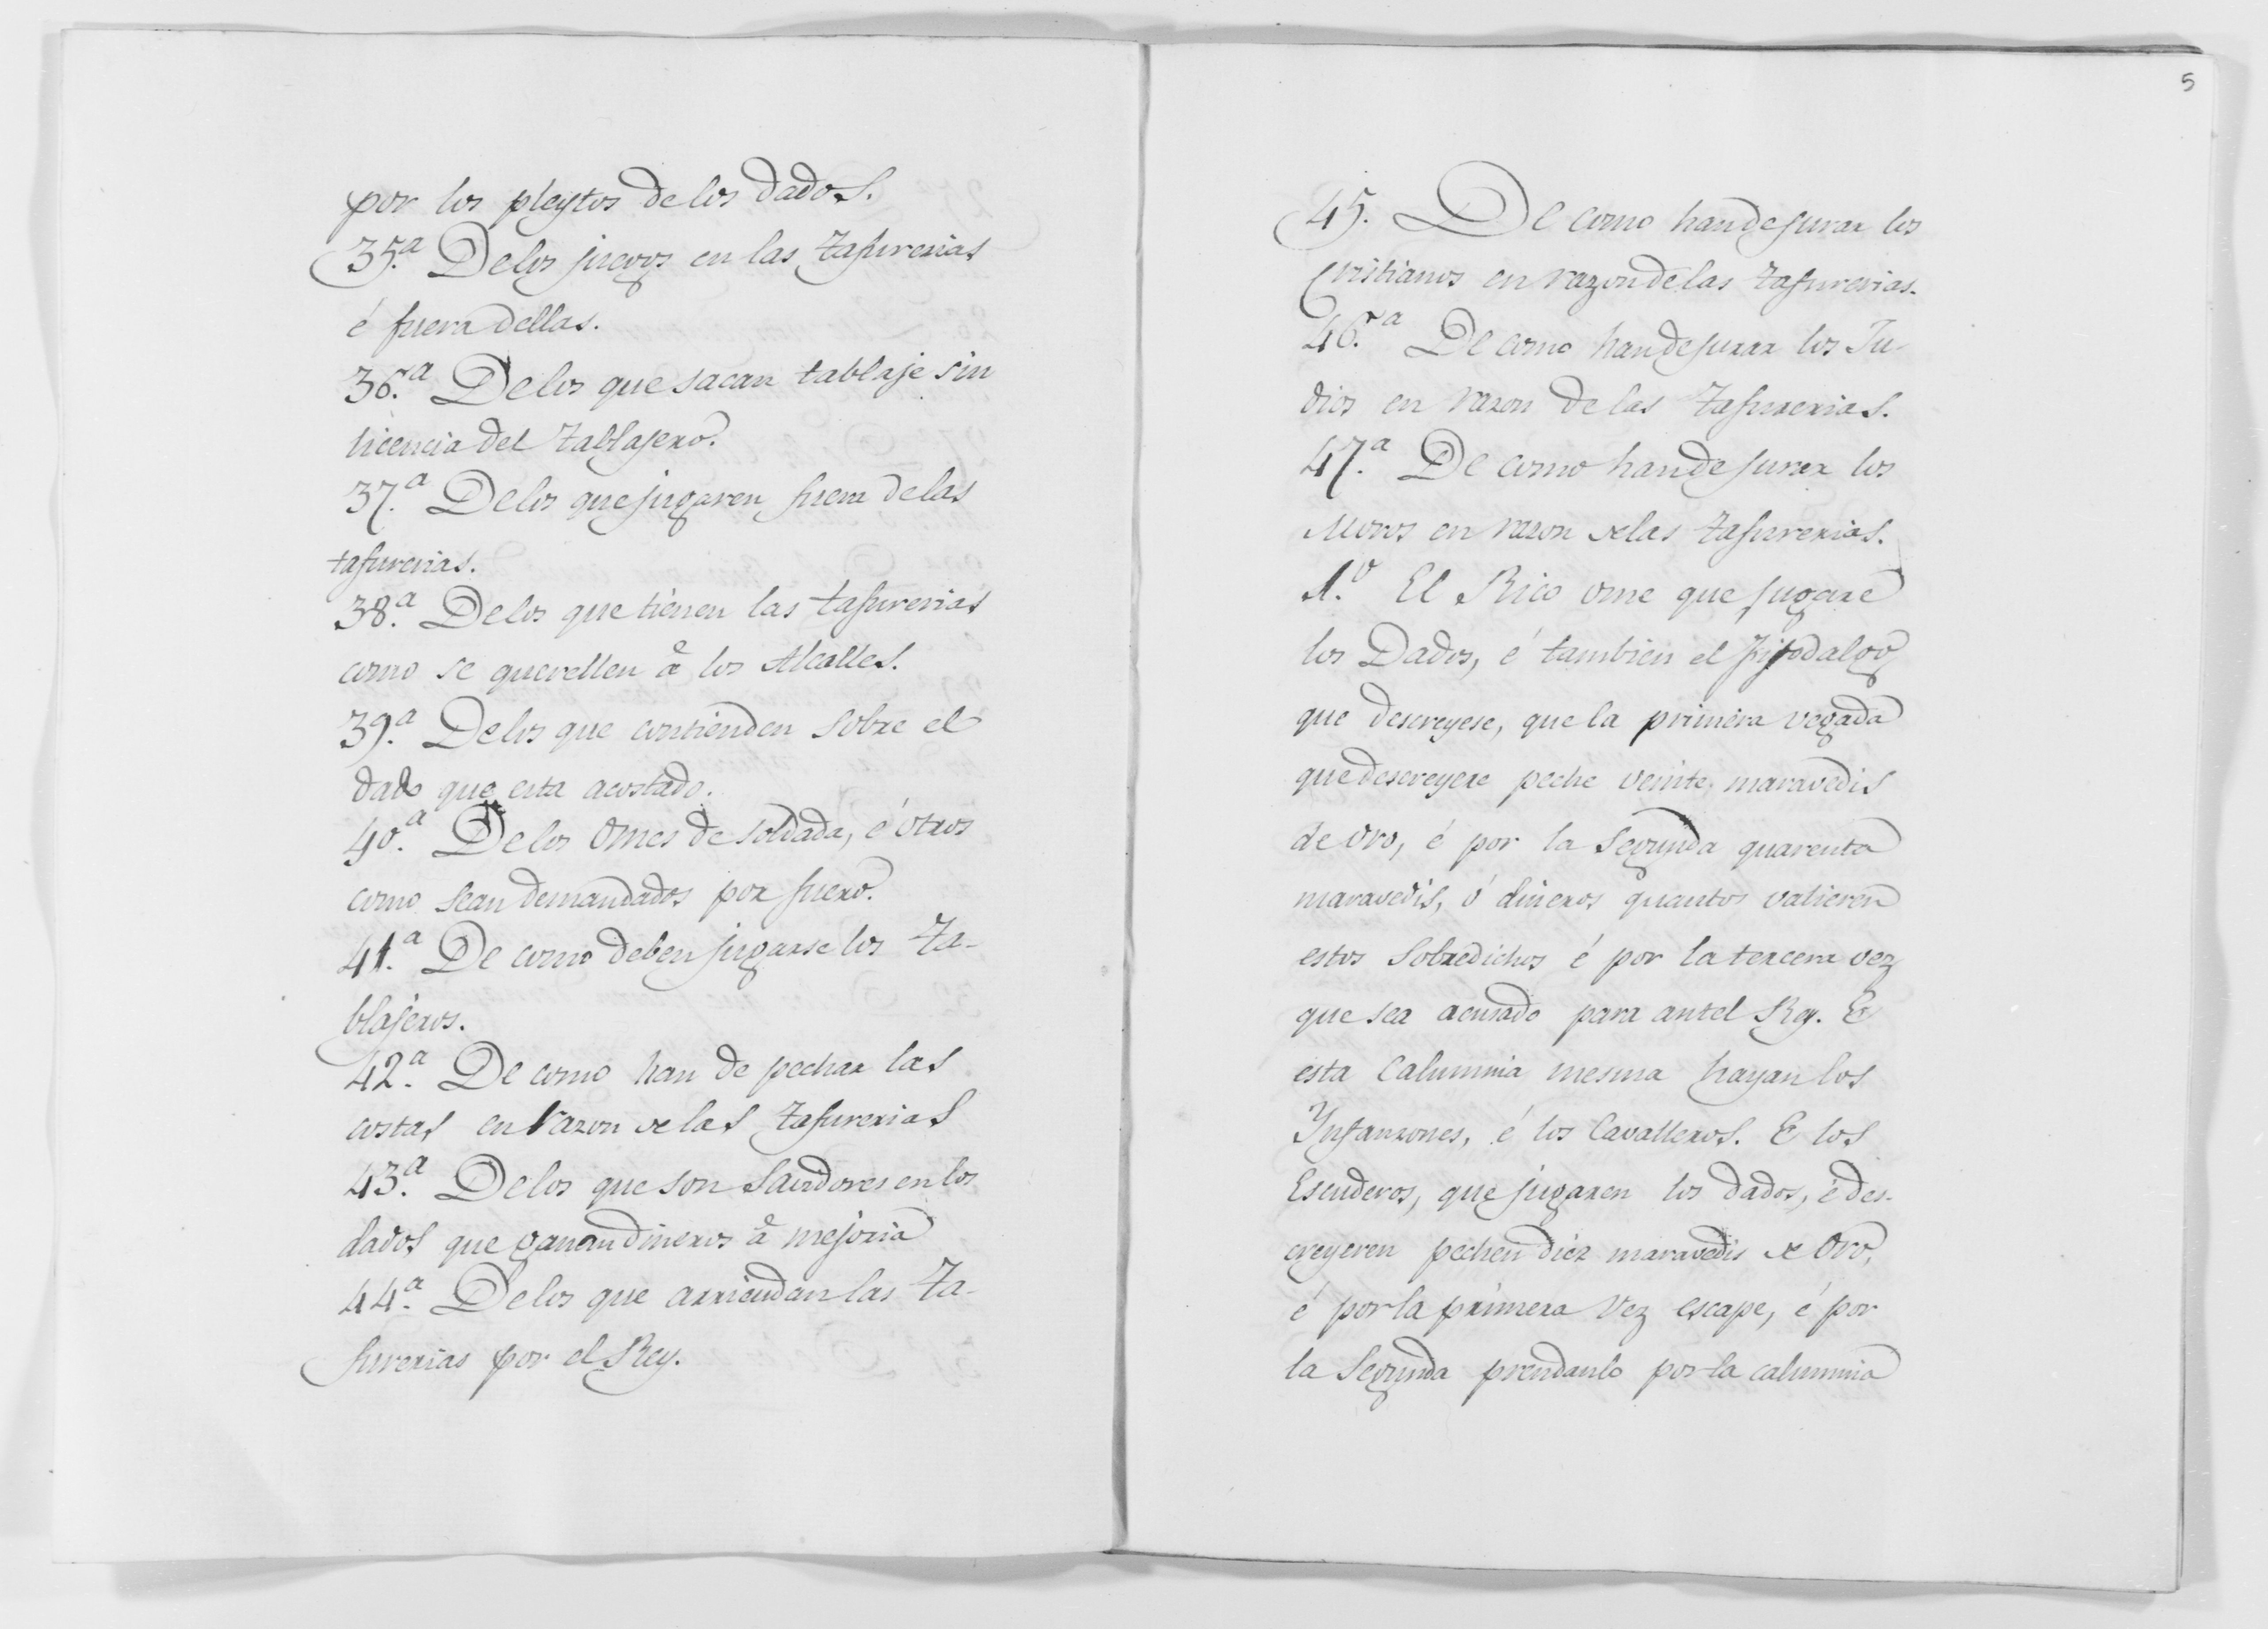 por los pleytos de los dados.
35.ª De los juegos en las tafurerias
é fuera dellas.
36.ª De los que sacan tablaje sin
licencia del tablajero.
37.ª De los que jugaren fuera de las
tafurerias.
38.ª De los que tienen las tafurerias
como se querellen â los Alcalles.
39.ª De los que contienden sobre el
dado que esta acostado.
40.ª De los Omes de soldada, é otros
como sean demandados por fuero.
41.ª De como deben jugarse los ta-
blajeros.
42.ª De como han de pechar las
costas en razon de las tafurerias
43.ª De los que son savidores en los
dados que ganan dineros â mejoria
44.ª De los que arriendan las ta-
furerias por el Rey.
5
45. De como han de jurar los
Cristianos en razon de las tafurerias.
46.ª De como han de jurar los Ju-
dios en razon de las tafurerias.
47.ª De como han de jurar los
Moros en razon de las tafurerias.
1.º El Rico ome que jugare
los Dados, é tambien el Fijodalgo
que descreyese, que la primera vegada
que descreyere peche veinte maravedis
de oro, é por la Segunda quarenta
maravedis, ó dineros quantos valieren
estos Sobredichos é por la tercera vez
que sea acusado para antel Rey. E
esta Calumnia mesma hayan los
Ynfanzones, é los Cavalleros. E los
Escuderos, que jugaren los dados, é des-
creyeren pechen diez maravedis de Oro,
é por la primera vez escape, é por
la Segunda prendanlo por la calumnia